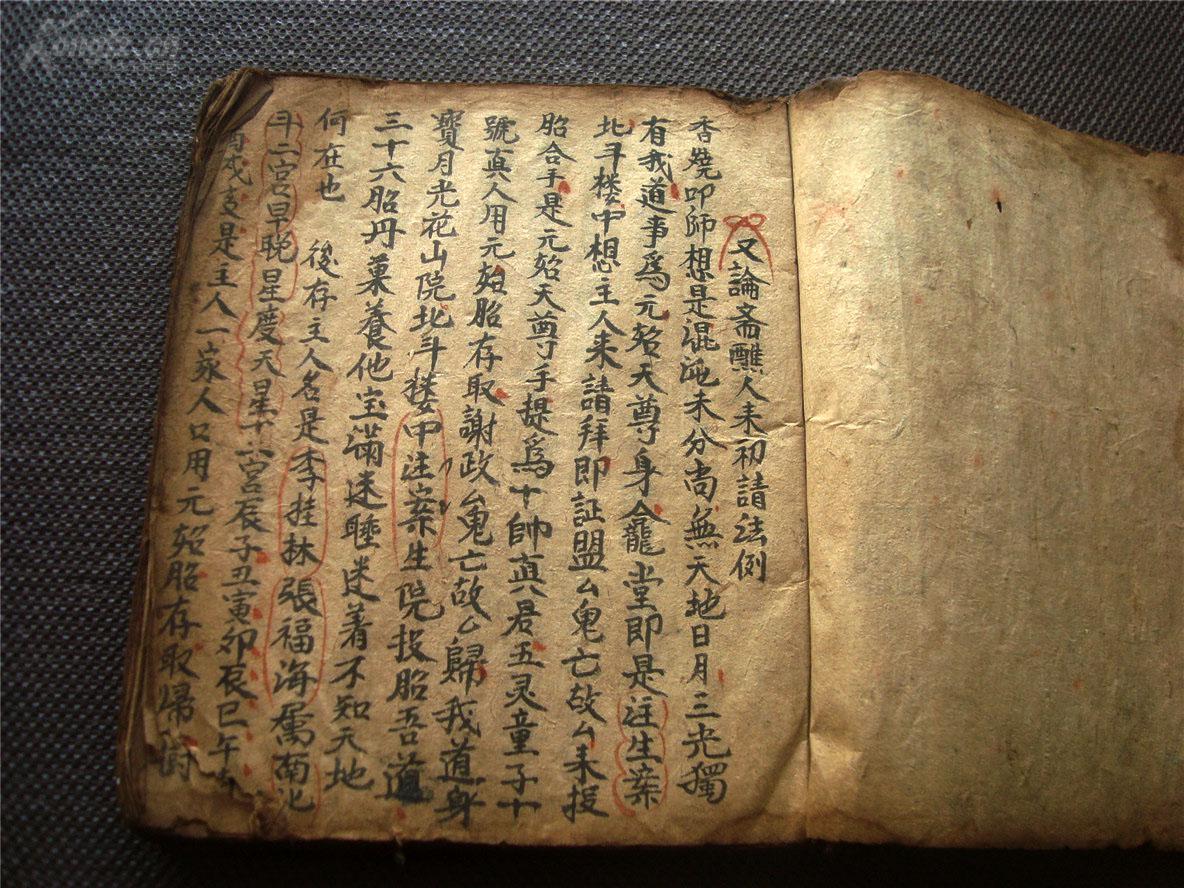 又論斋醮人来初請法例
香燒叩師想是混沌未分尚無天地日月三光獨
有我道事為元始天尊身人龕堂即是注生案
北斗楼中想主人来請拜即証盟厶鬼亡故厶来投
胎合手是元始天尊手提為十帥真君五灵童子十
號真人用元始胎存取謝政厶鬼亡故厶歸我道身
寶月光花山院北斗楼中注案生院投胎吾道
三十六胎丹菓養他宝滿迷睡迷着不知天地
何在也 後存主人名是李桂林張福海属南北
斗二宮早晚星度天星十二宮辰子丑寅卯辰巳午未
酉戌亥是主人一家人口用元始胎存取帰